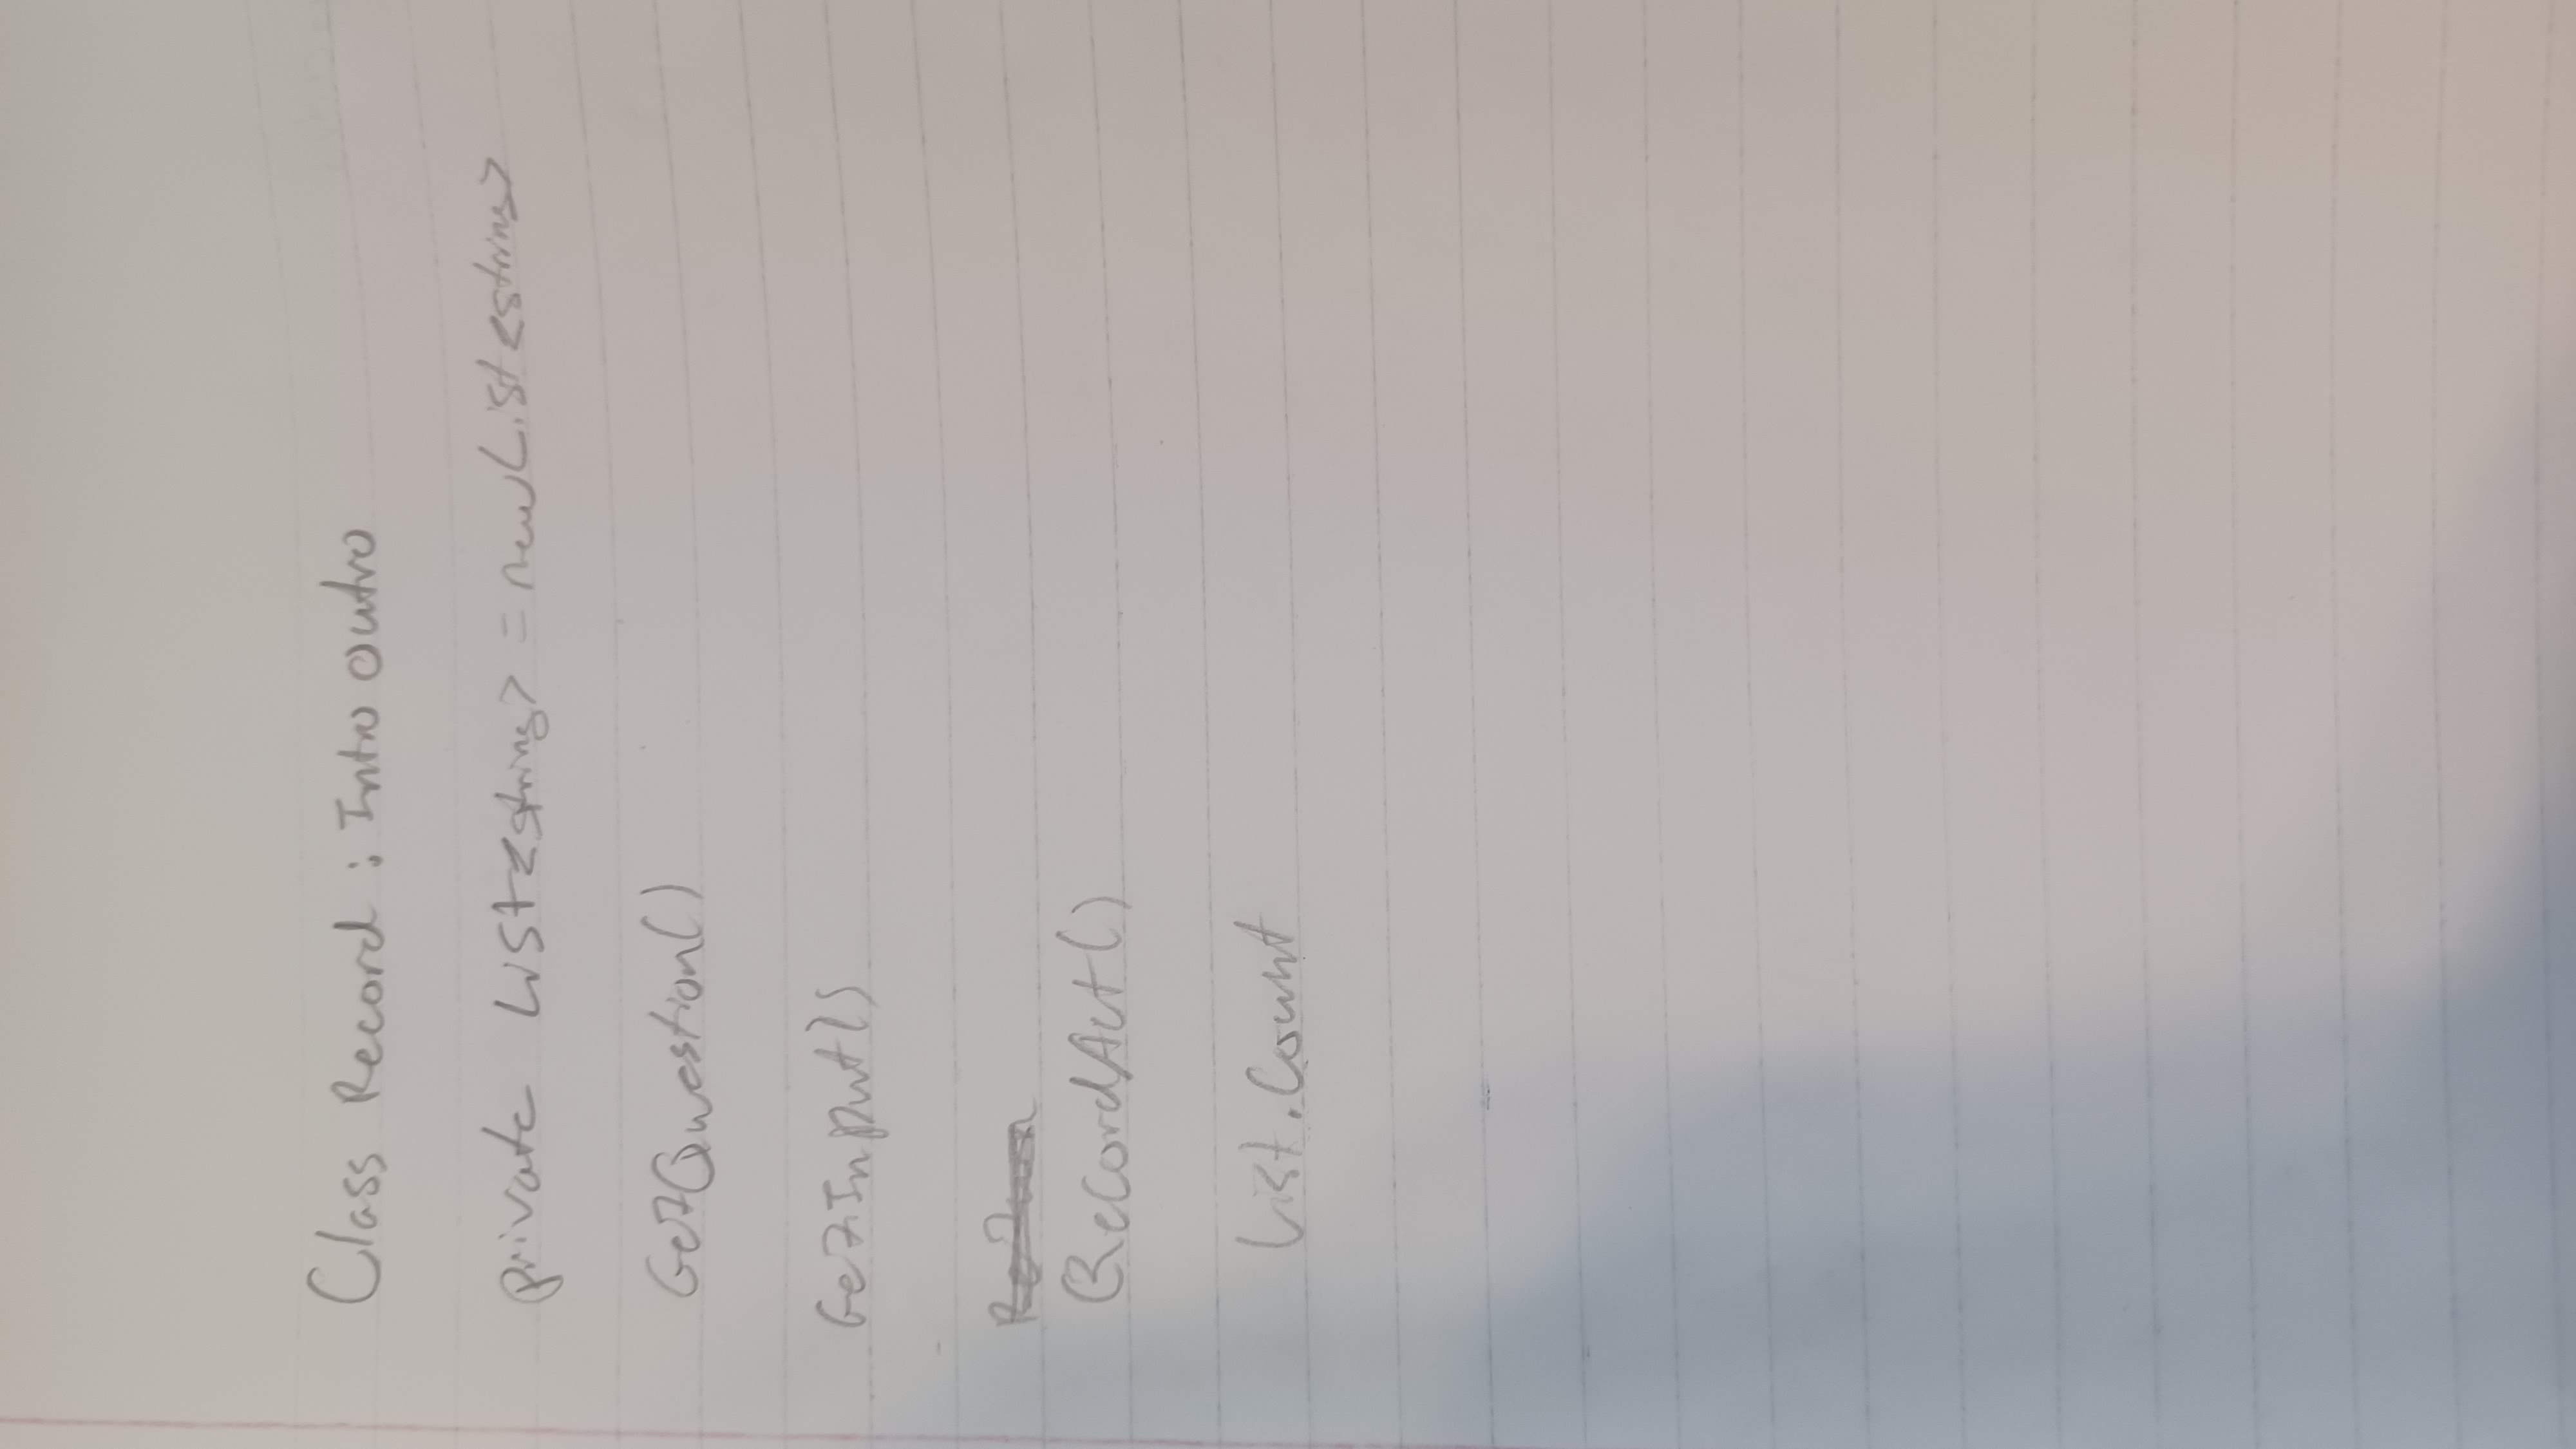 Class Record : Intro outro
private List<string> = new List<string>
GetQuestion()
GetInput()
RecordAct()
List.Count